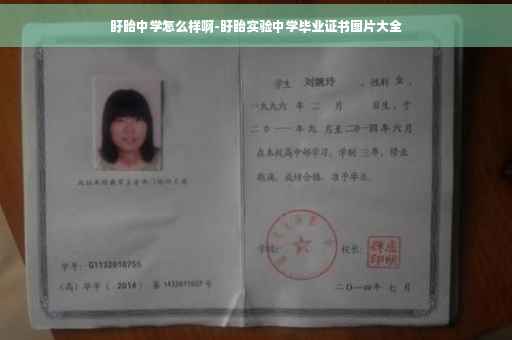 盱眙中学怎么样啊-盱眙实验中学毕业证书图片大全
学生 刘婉玲 ，性别 女 ，
一九九六 年 二 月 日生，于
二〇一一年 九 月至二〇一四年 六 月
在本校高中部学习，学制 三 年，修业
期满，成绩合格，准予毕业。
学校： 校长：
学号：G1132010755
（高）毕字（ 2014 ）第 1432011027 号
二〇一四年 七 月